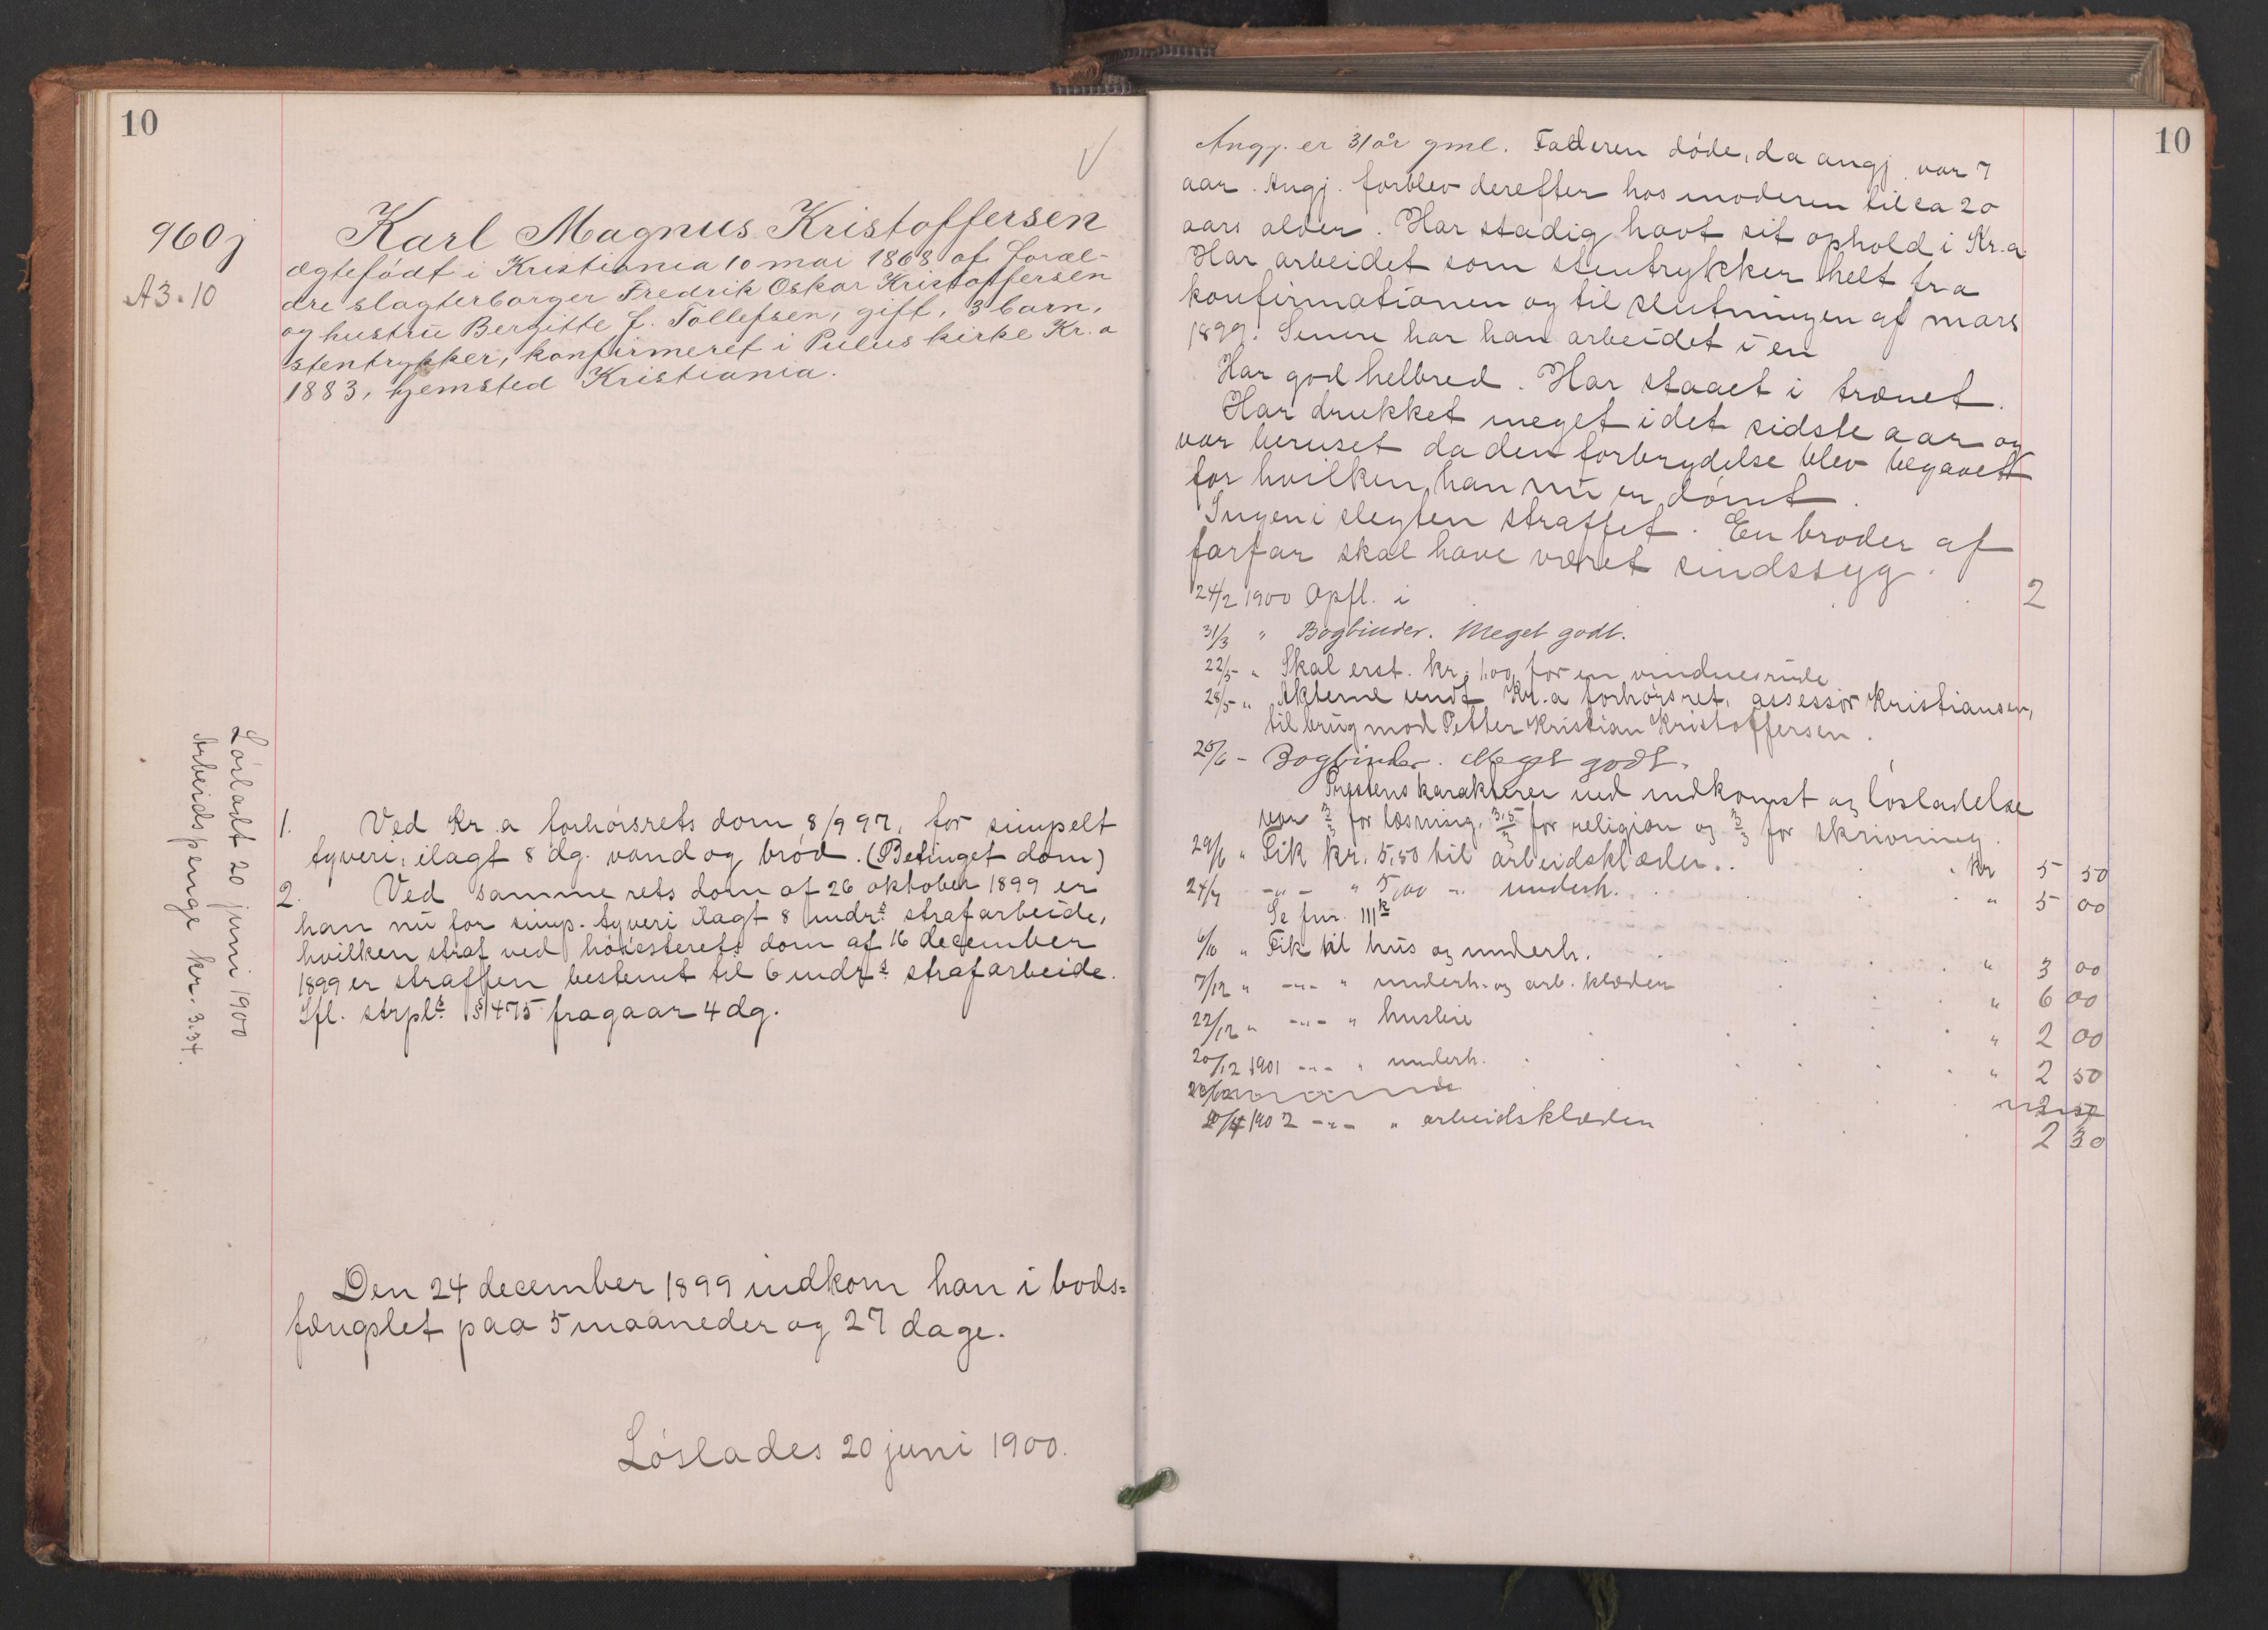 10
960j
A3.10
Karl Magnus Kristoffersen
ægtefødt i Kristiania 10 mai 1868 af foræl-
dre slagterborger Fredrik Oskar Kristoffersen
og hustru Bergitte f. Tollefsen, gift, 3 barn,
stentrykker, konfirmeret i Pulus kirke Kr.a
1883, hjemsted Kristiania.
1. Ved Kr.a forhørsrets dom 8/9 97, for simpelt
tyveri, ilagt 8 dg. vand og brød. (Betinget dom)
2. Ved samme rets dom af 26 oktober 1899 er
han nu for simp. tyveri ilagt 8 mdrs strafarbeide,
hvilken straf ved høiesterets dom af 16 december
1899 er straffen bestemt til 6 mdrs strafarbeide.
Ifl. strpls § 475 fragaar 4 dg.
Løsladt 20 juni 1900
Arbeidspenge kr. 3.34.
Den 24 december 1899 indkom han i bods=
fængslet paa 5 maaneder og 27 dage.
Løslades 20 juni 1900.
10
Angj. er 31 år gml. Faderen døde, da angj. var 7
aar. Angj. forblev derefter hos moderen til ca 20
aars alder. Har stadig havt sit ophold i Kr.a
Har arbeidet som stentrykker helt fra
konfirmationen og til slutningen af mars
1899. Senere har han arbeidet i en
Har god helbred. Har staaet i trænet.
Har drukket meget i det sidste aar og
var beruset da den forbrydelse blev begaaet
for hvilken han nu er dømt.
Ingen i slegten straffet. En broder af
farfar skal have været sindssyg.
24/2 1900 Opfl. i 2
31/3 " Bogbinder. Meget godt.
22/5 " Skal erst. kr. 1,00 for en vinduesrude
28/5 " Akterne sendt Kr.a forhørsret, assessor Kristiansen,
til brug mod Petter Kristian Kristoffersen.
20/6 - Bogbinder. Meget godt.
Prestens karakterer ved indkomst og løsladelse
var 3/3 for læsning, 3,5/3 for religion og 3/3 for skrivning.
29/6 " Fik kr. 5,50 til arbeidsklæder.. kr 5 50
24/7 -"- " 5,00 -"- underh. " 5 00
Se jnr. 111
6/10 " Fik til hus og underh. " 3 00
7/12 " -"- " underh. og arb. klæder " 6 00
22/12 " -"- " husleie " 2 00
20/12 1901 -"- " underh. " 2 50
1902 -"- " arbeidsklæder 2 30